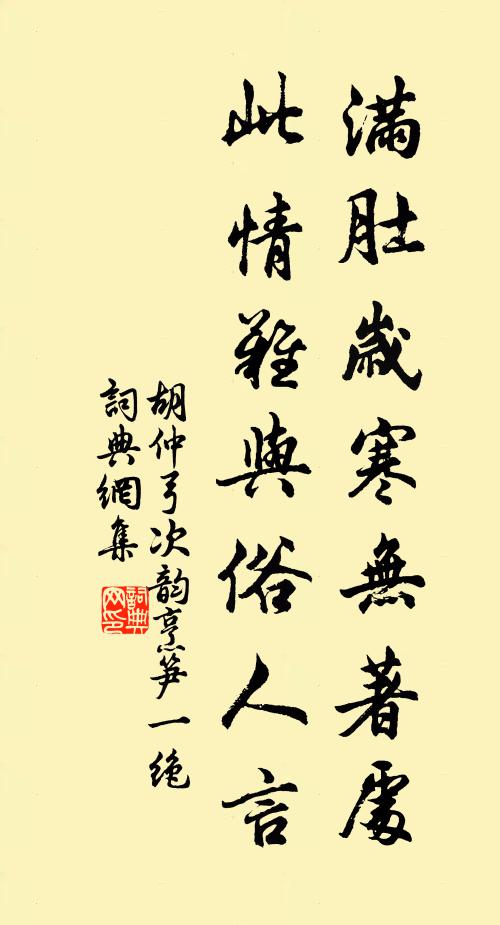 滿肚歲寒無著處
此情難與俗人言
胡仲弓次韵烹笋一絶
詞典網集
詞典網印